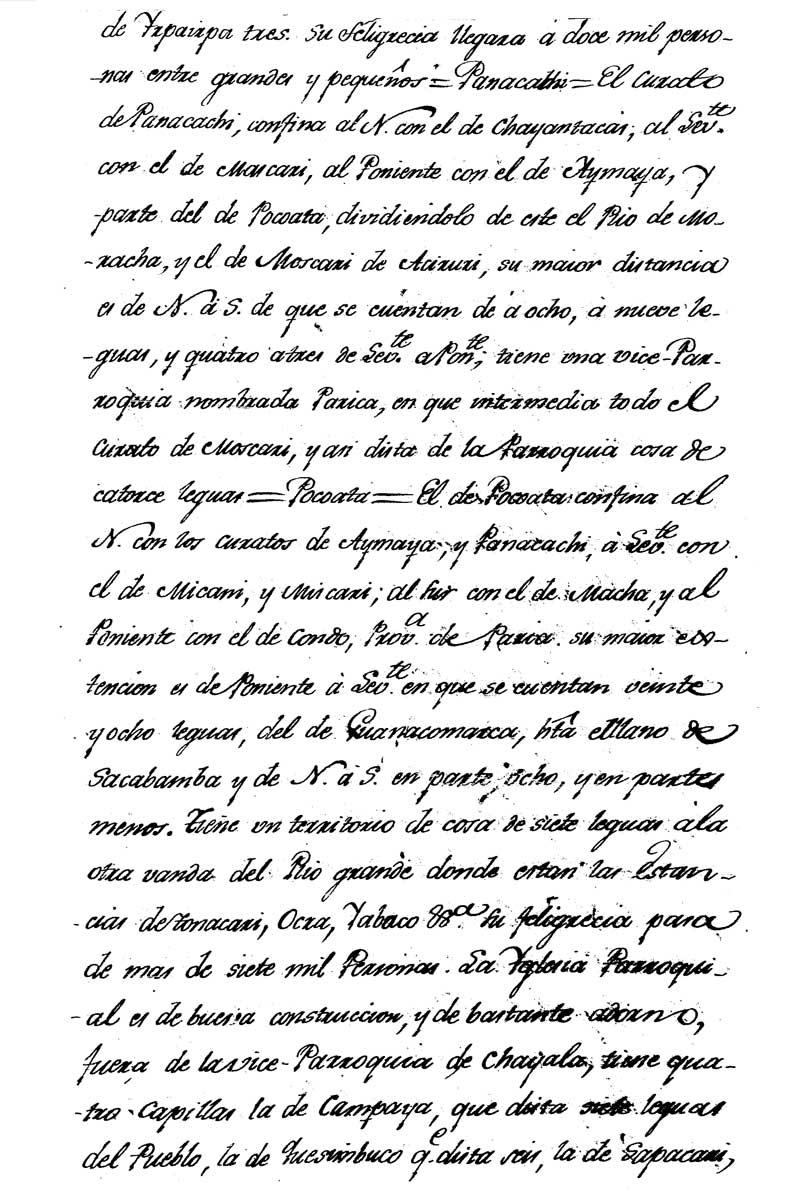 de Yrpairpa tres. Su feligrecia llegara à doce mil perso-
-nas entre grandes y pequeños = Panacathi = El Curato
de Panacachi, confina al N. con el de Chayantacas, al Lev.te
con el de Mascari, al Poniente con el de Aymaya, y
-parte del de Pocoata, dividiendolo de este el Rio de Mo-
-racha, y el de Moscari de Aciruri, su maior distancia
es de N. à S. de que se cuentan de à ocho, à nueve le-
-guas, y quatro atres de Lev.te a Pon.te, tiene una vice-Par-
roquia nombrada Parica, en que intermedia todo el
Curato de Moscari, y asi dista de la Parroquia cosa de
catorce leguas = Pocoata = El de Pocoata confina al
N. con los curatos de Aymaya, y Panacachi, à Lev.te con
el de Micani, y Miscari; al sur con el de Macha, y al
Poniente con el de Condo, Prov.a de Paria. su maior ex-
tencion es de Poniente à Lev.te en que se cuentan veinte
y ocho leguas, del de Guanacomarca, hta el llano de
Sacabamba y de N. à S. en parte ocho, y en partes
menos. Tiene un territorio de cosa de siete leguas à la
otra vanda del Rio grande donde estan las Estan-
-cias de Tomacari, Ocra, Tabaco &&.a Su feligrecia pasa
de mas de siete mil Personas. La Yglesia Parroqui-
-al es de buena construccion, y de bastante adorno,
fuera de la vice-Parroquia de Chayala, tiene qua-
-tro Capillas la de Campaya, que dista siete leguas
del Pueblo, la de Tuesimbuco q.e dista seis, la de Sapacari,